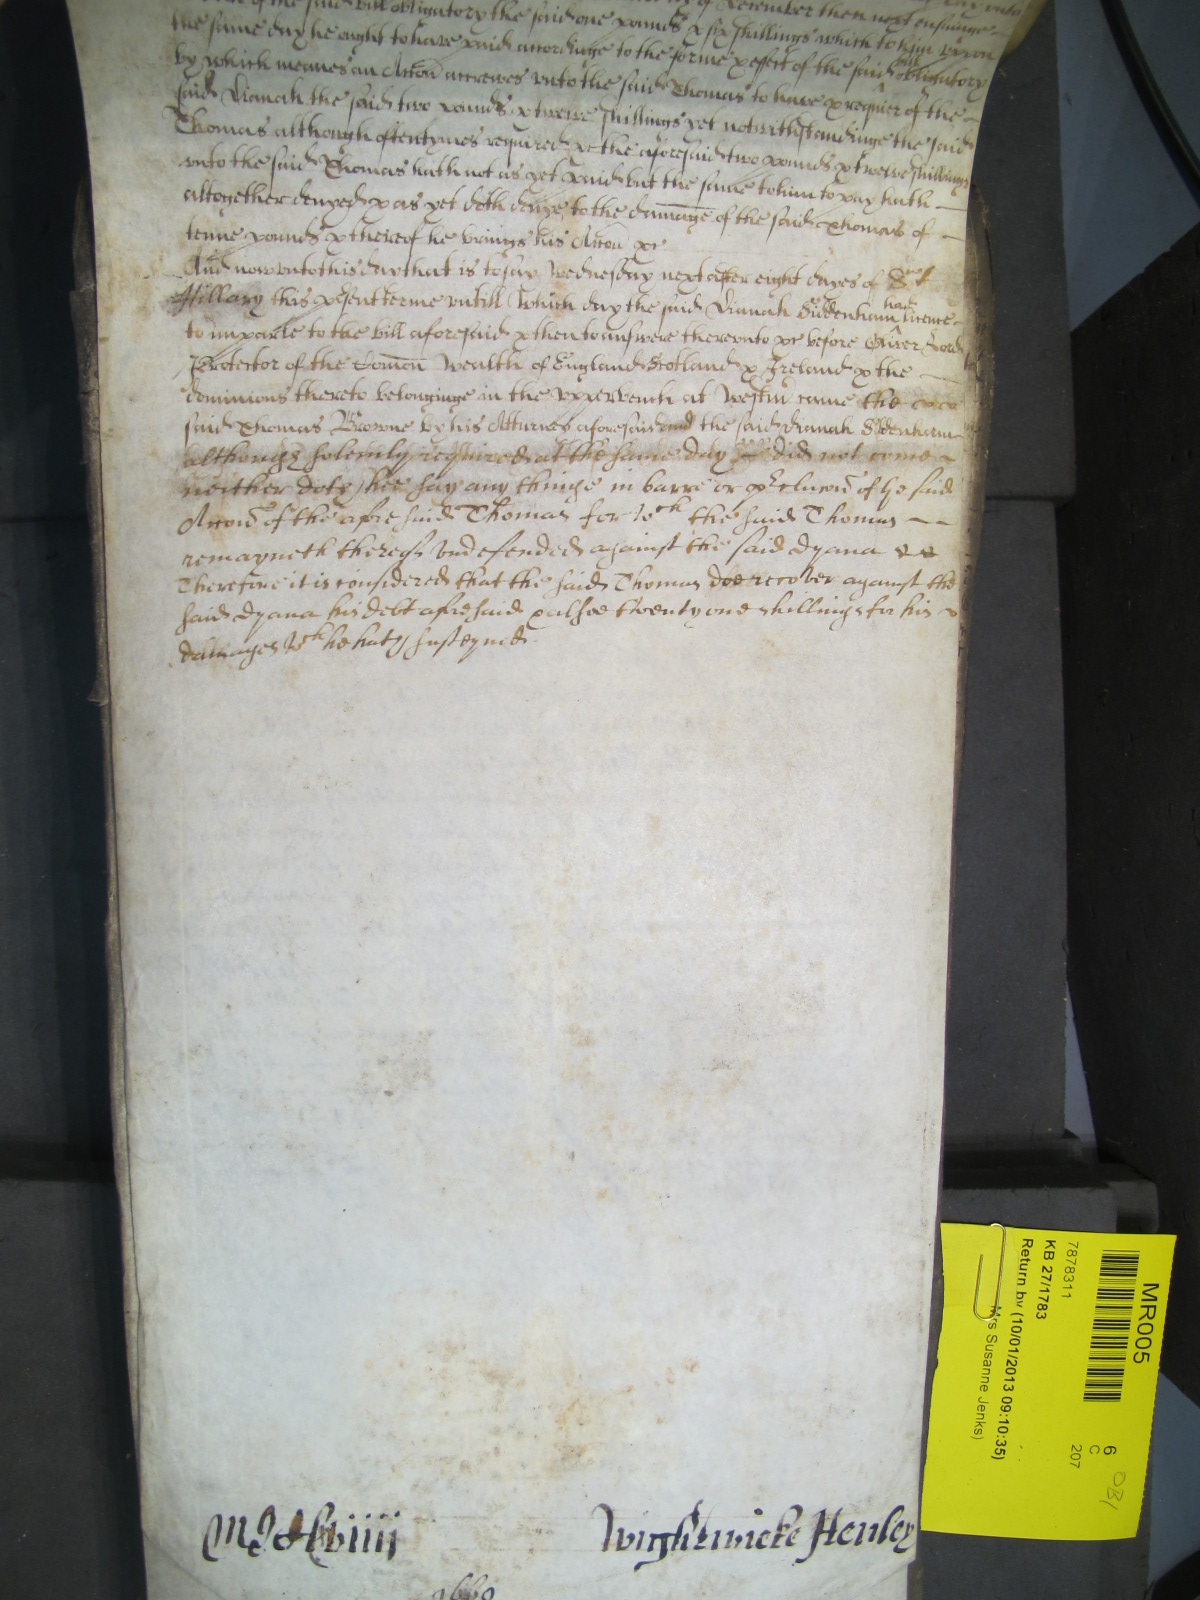 of the said bill obligatory the said one pounds & six shillings which to him uppon
the same day he ought to have paid accordinge to the forme & effect of the said bill obligatory
by which meanes an Accon accrewes unto the said Thomas to have & require of the
said Dianah the said two pounds & twelve shillings yet notwithstandinge the said
Thomas although oftentymes required the aforesaid two pounds & twelve shillings
unto the said Thomas hath not as yet paid but the same to him to pay hath
altogether denyed & as yet doth denye to the damage of the said Thomas of
tenne pounds & thereof he brings his Accon &c
And now unto this day that is to say Wednesday next after eight dayes of St
Hillary this present terme untill which day the said Dianah Siddenham had licence
to imparle to the bill aforesaid & then to answere thereunto &c before Oliver Lord
Protector of the Comon Wealth of England Scotland & Ireland & the
dominions thereto belonginge in the upper bench at Westm came the
said Thomas Browne by his Atturney aforesaid and the said Dianah Sidenham
although solemly required at the same day did not come
neither doth shee say any thinge in barre or of the said
Accon of the afresaid Thomas for wch the said Thomas
remayneth thereof undefended against the said Dyana
Therefore it is considered that the said Thomas doe recover against the
said Dyana his debt afresaid & alsoe twenty one shillings for his
damages wch he hath susteyned
Wightwicke Henley
MR005
7878311
KB 27/1783
Return by (10/01/2013 09:10:35)
Mrs Susanne Jenks)
6
C
207